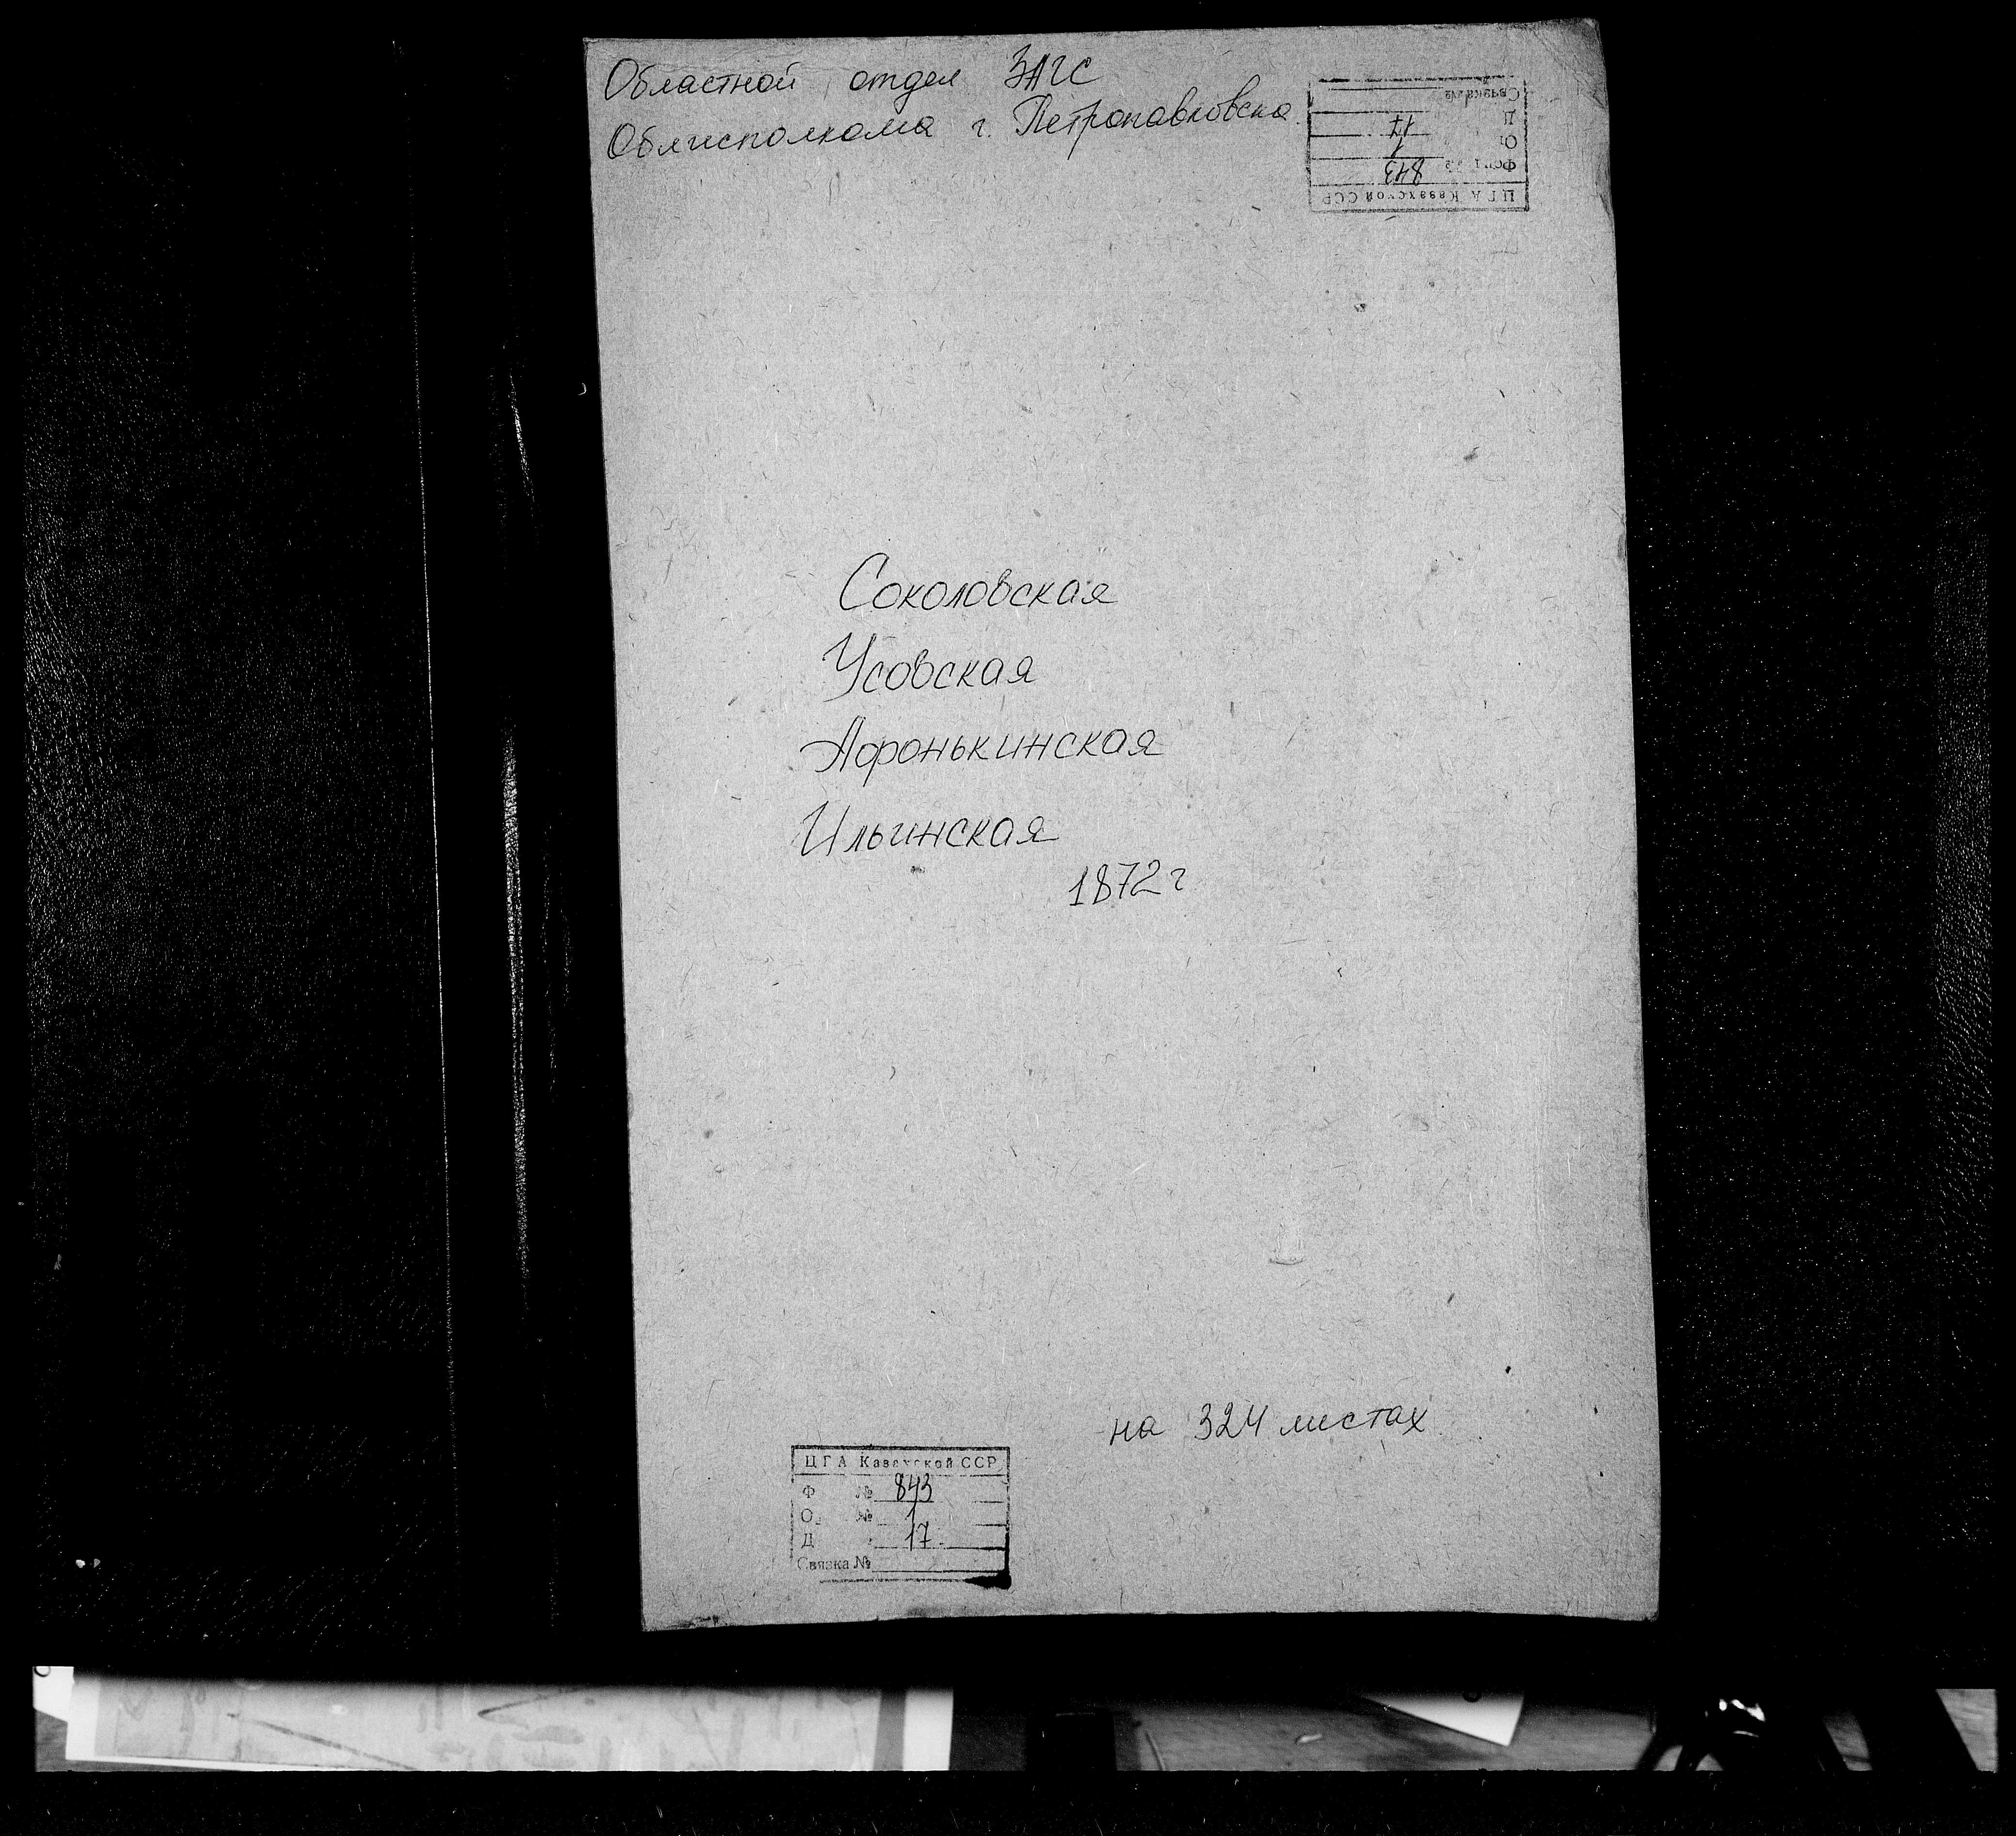 Областной отдел ЗАГС
Облисполкома г. Петропавловска
ЦГА Казахской ССР
Фонд № 843
О 1
Д 17
Связка №
Соколовская
Усовская
Афонькинская
Ильинская
1872 г
на 324 листах
ЦГА Казахской ССР
Ф № 843
О № 1
Д 17
Связка №